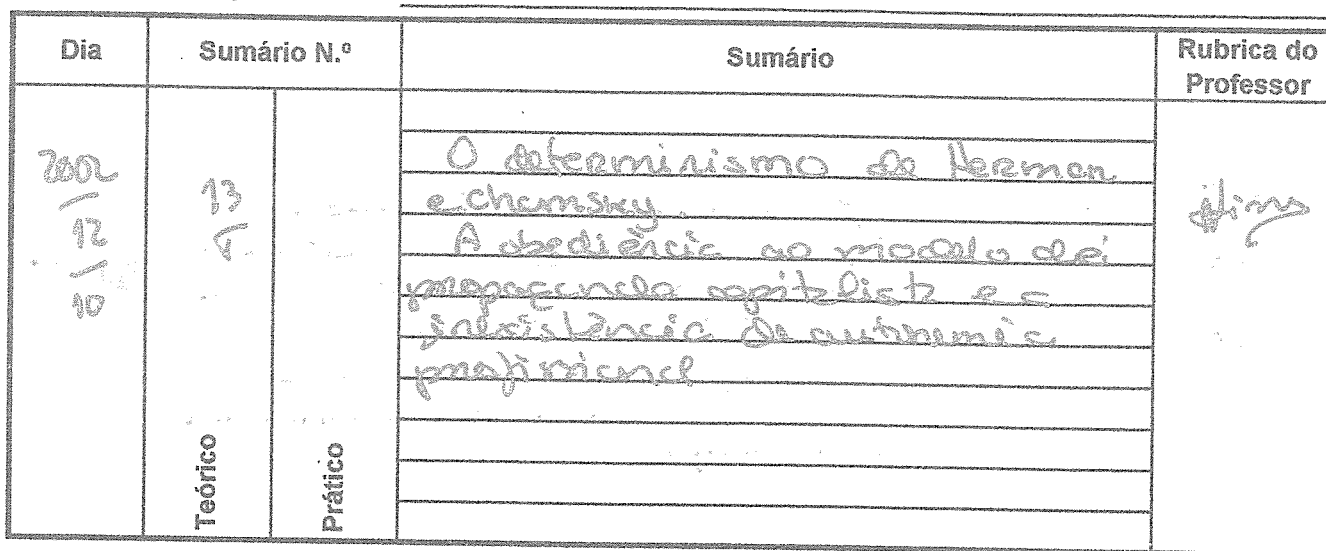 Dia
Sumário N.º
Sumário
Rubrica do
Professor
2002
12
10
13
O determinismo de Herman
e Chomsky.
A obediência ao modelo de
propaganda capitalista e a
inexistência de autonomia
profissional
Teórico
Prático